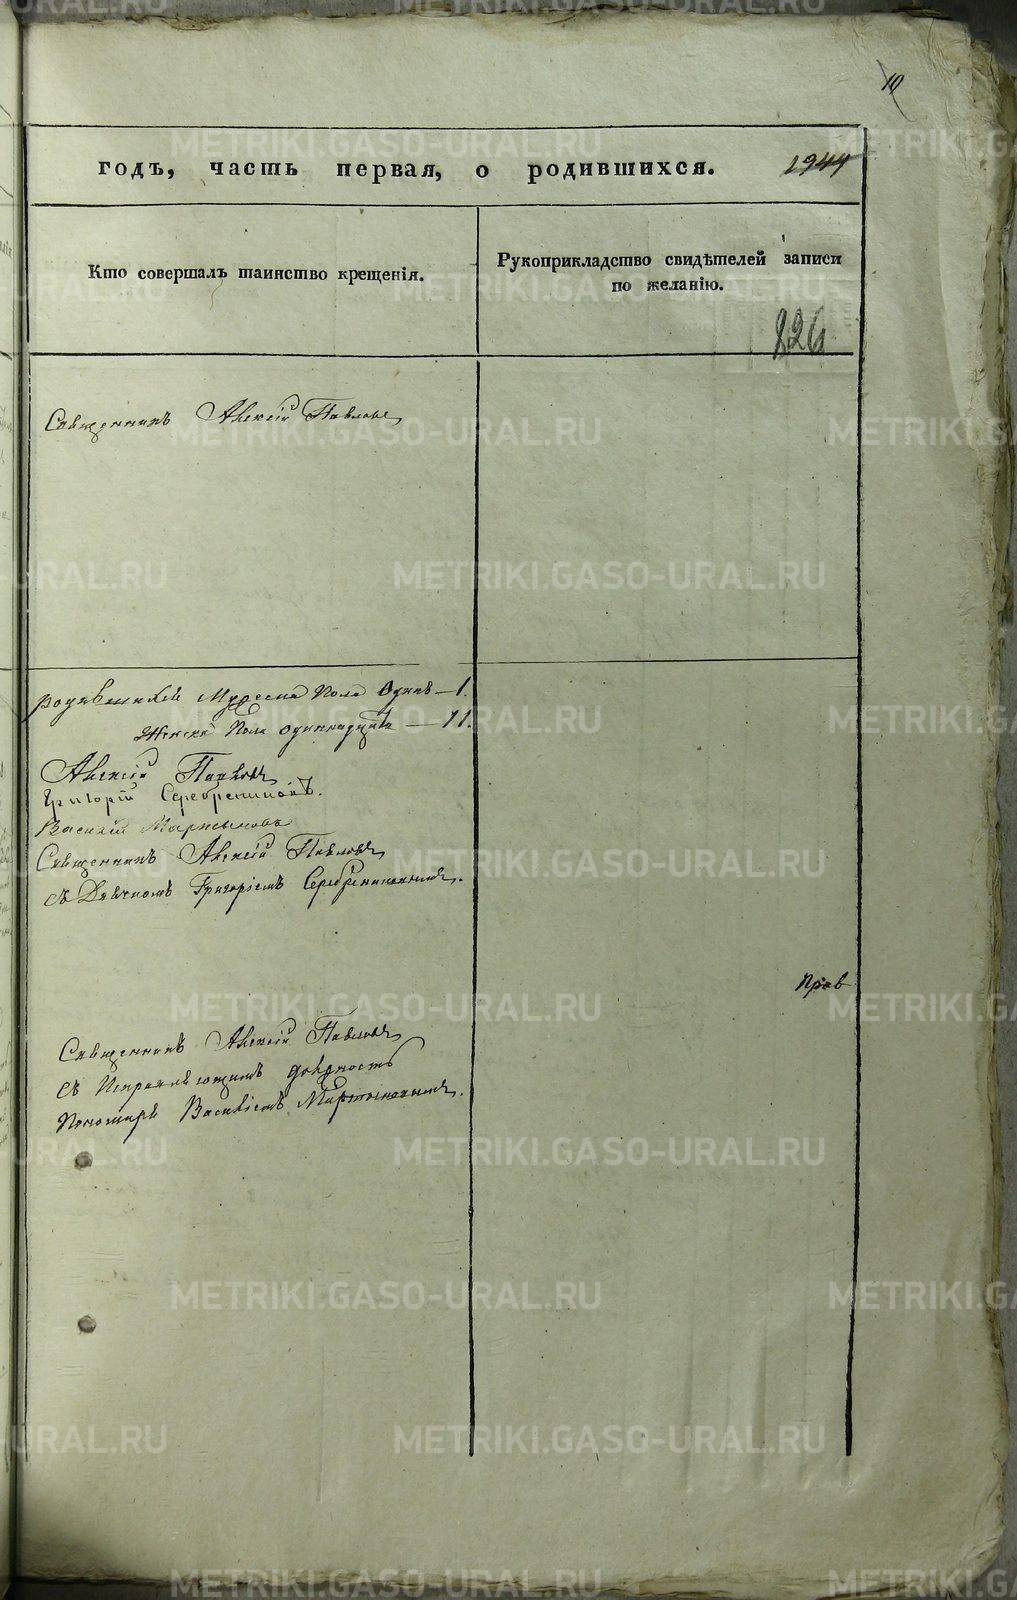 10
годъ, часть первая, о родившихся. 1944
Кто совершалъ таинство крещенія.
Рукоприкладство свидѣтелей записи
по желанію.
826
Священникъ Алексій Павловъ
родившихся Мужеска Пола Одинъ — 1.
Женска Пола одиннадцать — 11.
Алексій Павловъ
Григорій Серебренниковъ.
Василій Мартыновъ
Священникъ Алексій Павловъ
съ Дьячкомъ Григоріемъ Серебренниковымъ.
Пров
Священникъ Алексій Павловъ
съ Исправляющимъ должность
Пономаря Василіемъ Мартыновымъ.
METRIKI.GASO-URAL.RU